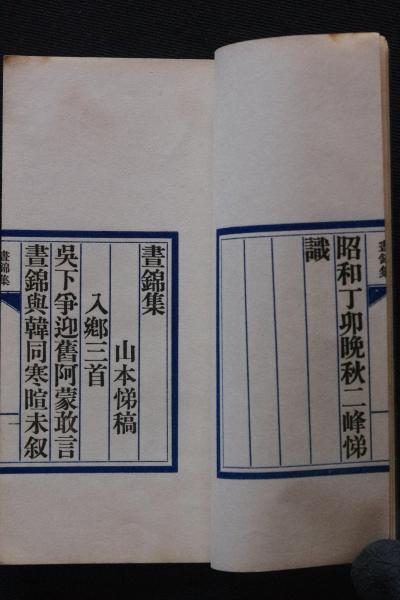 昭和丁卯晩秋二峰悌
識
晝錦集
晝錦集
山本悌稿
入鄉三首
吳下爭迎舊阿蒙敢言
晝錦與韓同寒暄未叙
晝錦集
一